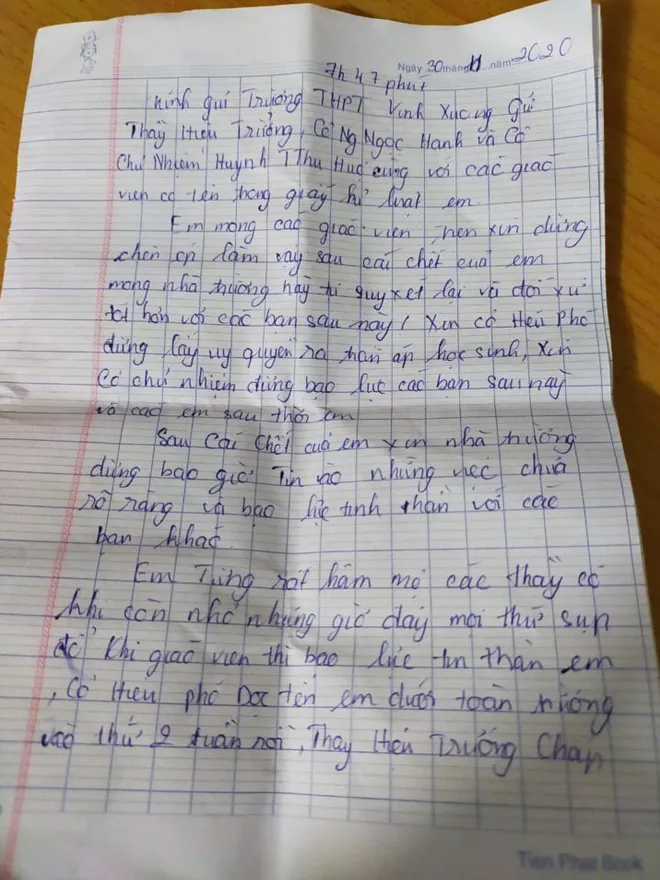 7h 47 phút
Ngày 30 tháng 11 năm 2020
Kính gửi Trường THPT Vĩnh Xương Gửi
Thầy Hiệu Trưởng, Cô Ng Ngọc Hạnh và Cô
Chủ Nhiệm Huỳnh T Thu Huệ cùng với các giáo
viên có tên trong giấy kỉ luật em.
Em mong các giáo viên nên xin đừng
chèn ép làm vậy sau cái chết của em
mong nhà trường hãy tự suy xét lại và đối xử
tốt hơn với các bạn sau này! Xin cô Hiệu Phó
đừng lấy uy quyền ra trấn áp học sinh, xin
Cô chủ nhiệm đừng bạo lực các bạn sau này
và các em sau thời em
Sau Cái Chết của em xin nhà trường
đừng bao giờ Tin vào những việc chưa
rõ ràng và bạo lực tinh thần với các
bạn khác.
Em Từng rất hâm mộ các thầy cô
khi còn nhỏ nhưng giờ đây mọi thứ sụp
đổ khi giáo viên thì bạo lực tin thần em
, Cô Hiệu phó Đọc tên em dưới toàn trường
vào thứ 2 tuần rồi, Thầy Hiệu Trưởng Chấp
Tien Phat Book